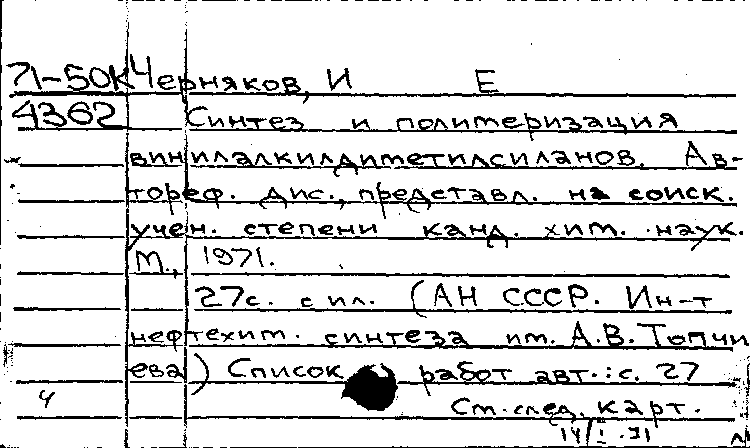 71-50К Черняков, И Е
4362 Синтез и полимеризация
винилалкилдиметилсиланов. Ав-
тореф. дис., представл. на соиск.
учен. степени канд. хим. наук.
М., 1971.
27с. с ил. (АН СССР. Ин-т
нефтехим. синтеза им. А.В. Топчи
ева) Список работ авт.: с. 27
ч См. след. карт.